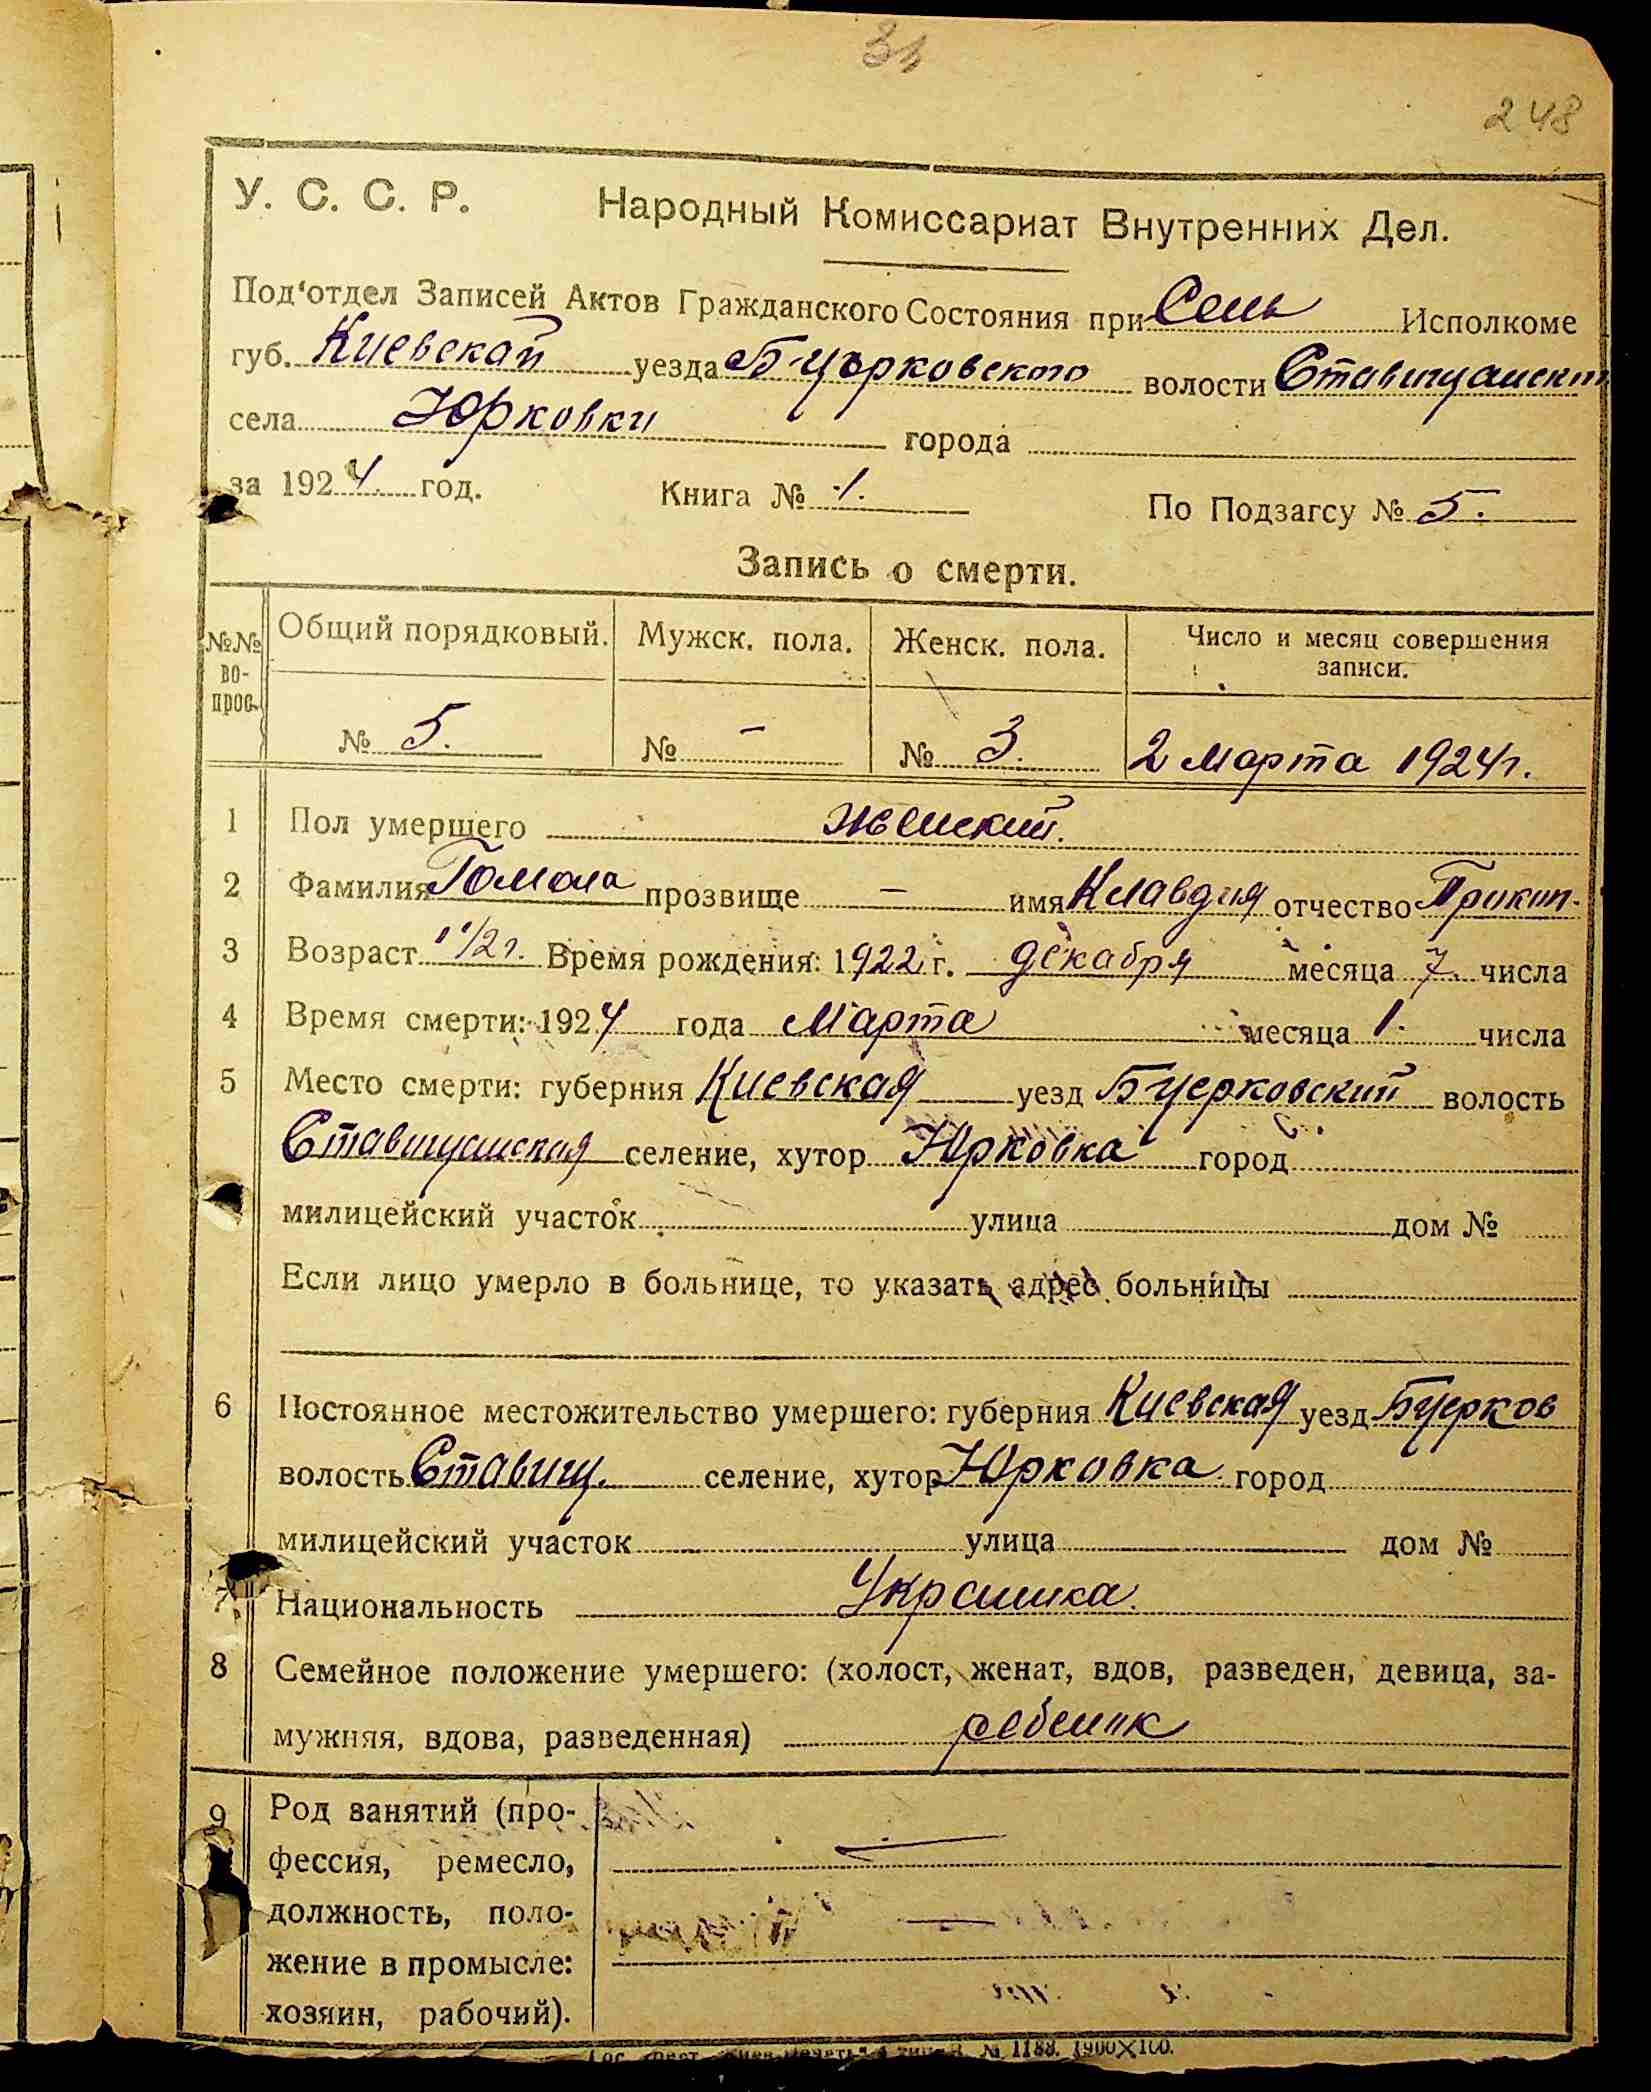 248
У. С. С. Р. Народный Комиссариат Внутренних Дел.
Под'отдел Записей Актов Гражданского Состояния при Сель Исполкоме
губ. Киевской уезда Бцерковского волости Ставищанской
села Юрковки города
за 1924 год. Книга № 1. По Подзагсу № 5.
Запись о смерти.
№№ во- прос. Общий порядковый. Мужск. пола. Женск. пола. Число и месяц совершения записи.
№ 5. № – № 3. 2 Марта 1924 г.
1 Пол умершего женский.
2 Фамилия Гомола прозвище – имя Клавдия отчество Прокоп.
3 Возраст 1 1/2 г. Время рождения: 1922 г. декабря месяца 7 числа
4 Время смерти: 1924 года Марта месяца 1. числа
5 Место смерти: губерния Киевская уезд Бцерковский волость
Ставищанская селение, хутор с. Юрковка город
милицейский участок улица дом №
Если лицо умерло в больнице, то указать адрес больницы
6 Постоянное местожительство умершего: губерния Киевская уезд Бцерков
волость Ставищ. селение, хутор Юрковка город
милицейский участок улица дом №
7 Национальность Украинка.
8 Семейное положение умершего: (холост, женат, вдов, разведен, девица, за-
мужняя, вдова, разведенная) ребенок
9 Род занятий (про-
фессия, ремесло, –
должность, поло- –
жение в промысле:
хозяин, рабочий).
№ 1188. 1900×100.